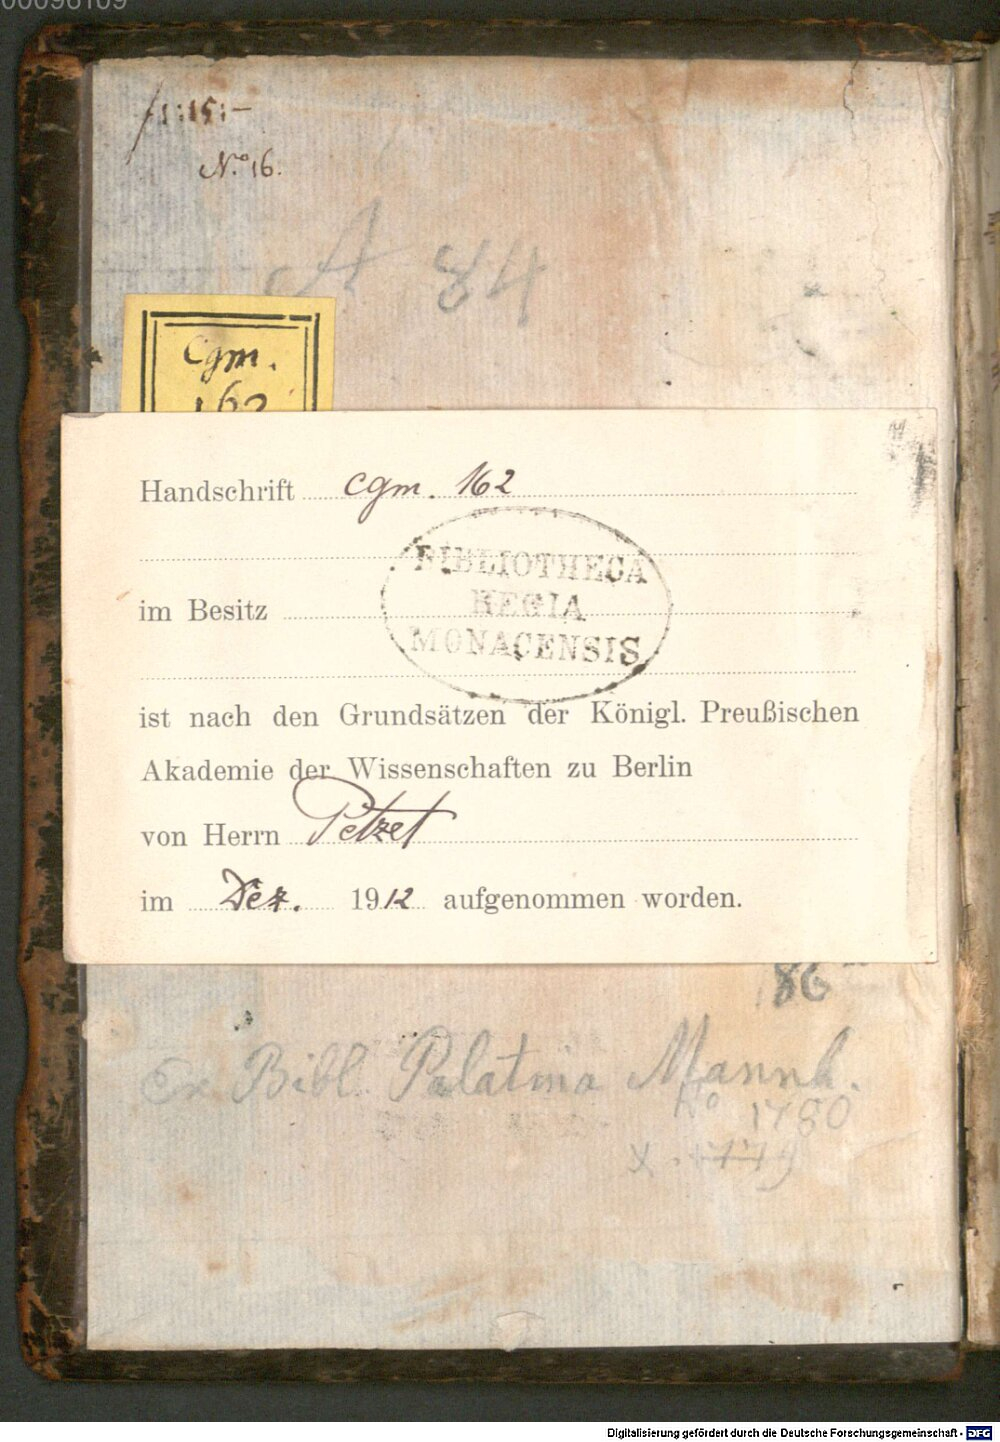 00096109
1:15:-
No 16.
A 84
Cgm.
162
Handschrift cgm. 162
BIBLIOTHECA
REGIA
MONACENSIS
im Besitz
ist nach den Grundsätzen der Königl. Preußischen
Akademie der Wissenschaften zu Berlin
von Herrn Petzet
im Dez. 1912 aufgenommen worden.
86
Ex Bibl. Palatina Mannh.
No 1780
Digitalisierung gefördert durch die Deutsche Forschungsgemeinschaft - DFG